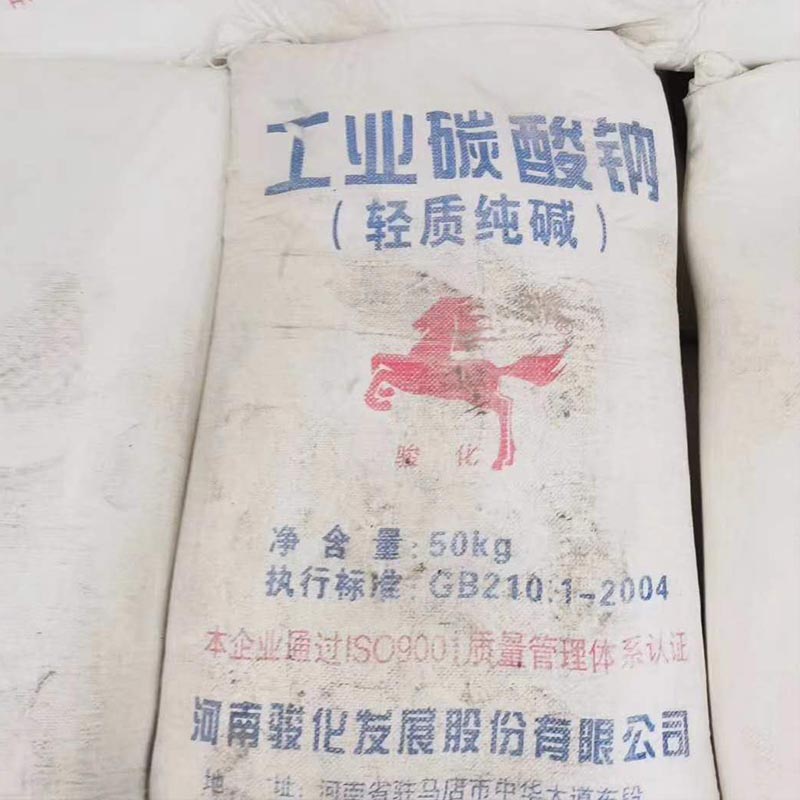 工业碳酸钠
(轻质纯碱)
®
骏化
净含量:50kg
执行标准:GB210.1-2004
本企业通过ISO9001质量管理体系认证
河南骏化发展股份有限公司
地址:河南省驻马店市中华大道东段